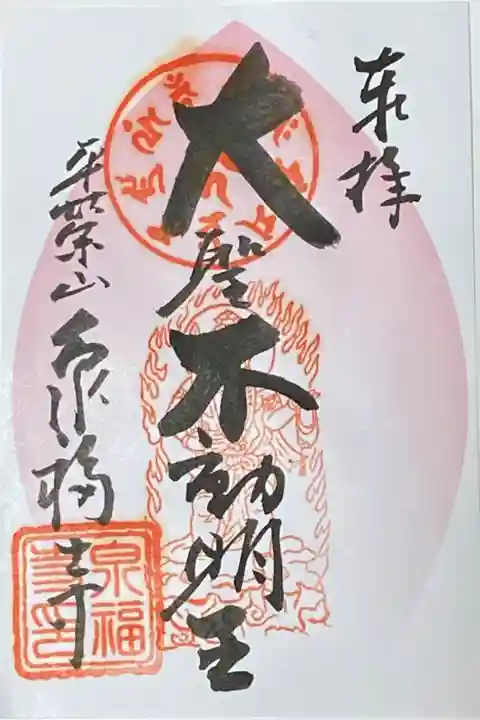 奉拝
大聖不動明王
山 泉福寺
泉福
寺印